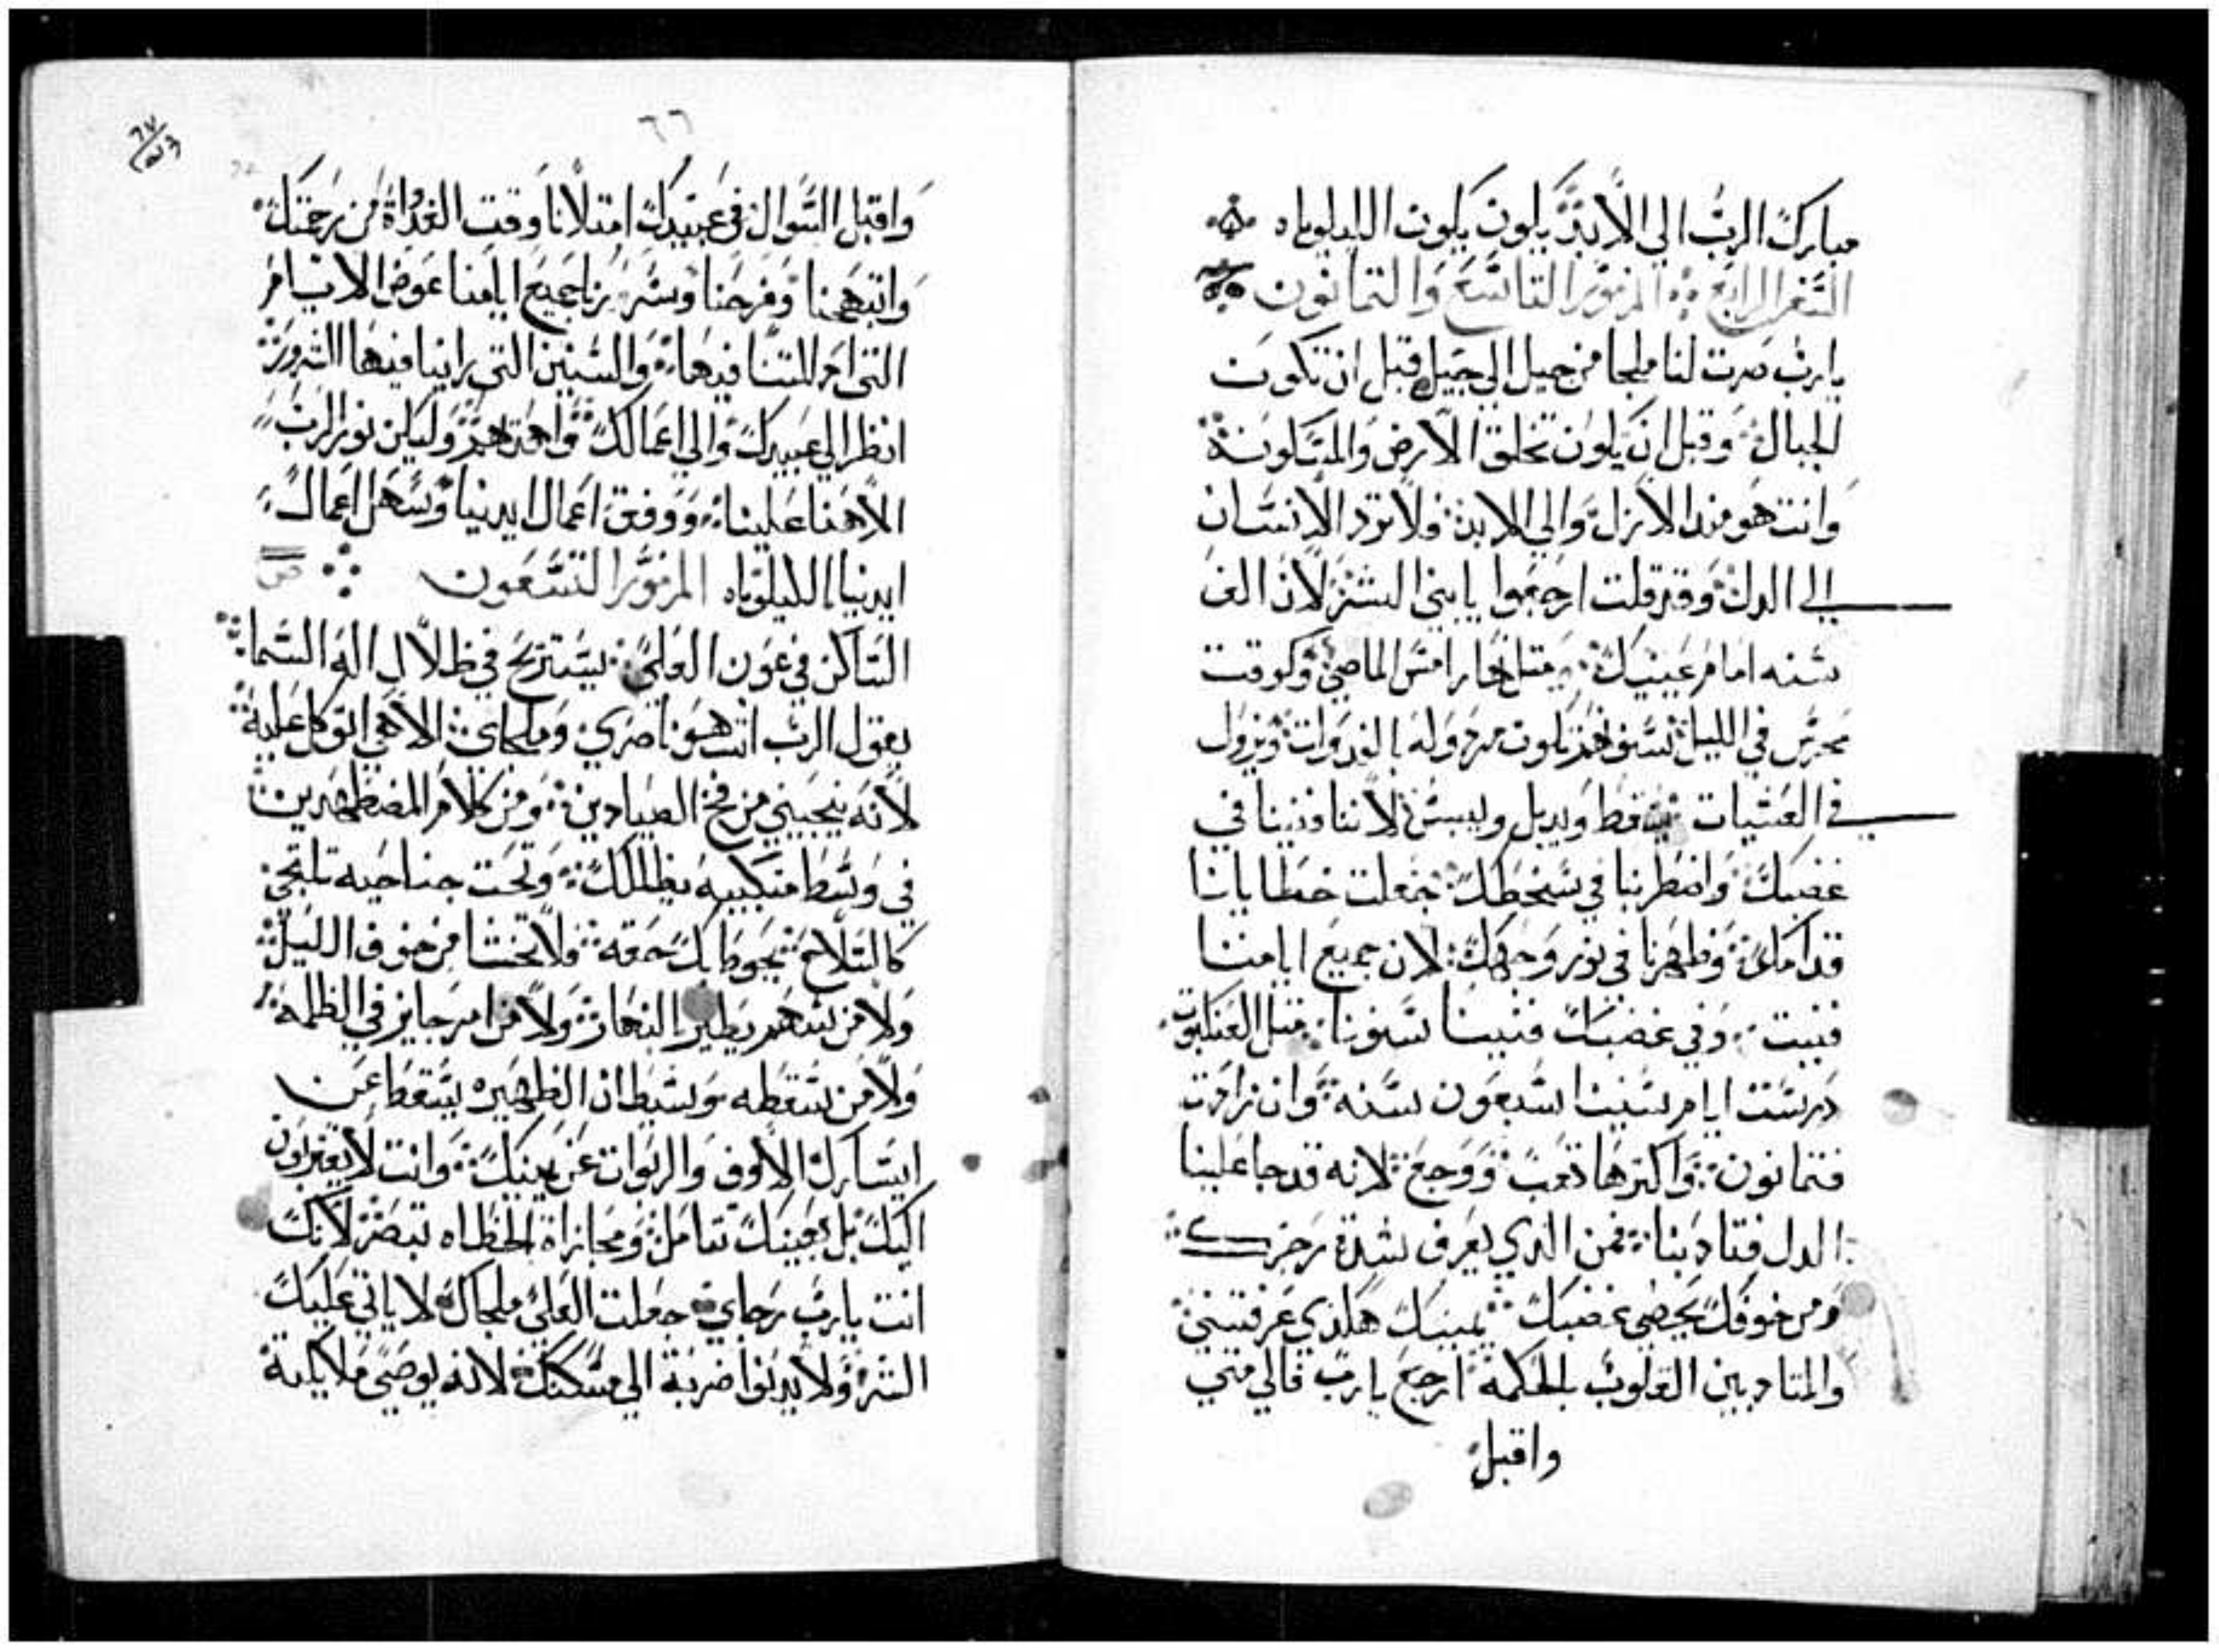 مبارك الرب الي الابد يكون يكون الليلوياه
السفر الرابع المزمور التاسع والتمانون
يارب صرت لنا ملجا من جيل الي جيل قبل ان تكون
الجبال وقبل ان يكون تخلق الارض والمسكونة
وانت هو مند الازل والي الابد فلا ترد الانسان
الي الدل وقد قلت ارجعوا يا بني البشر لان الف
سنه امام عينيك متل نهار امس الماضي وكوقت
محرس في الليل سنوهم يكون مردوله بالغدوات ويزول
في العشيات يسقط ويدبل وييبس لاننا فنينا في
غضبك واضطربنا في سخطك جعلت خطايانا
قدامك وظهرنا في نور وجهك لان جميع ايامنا
فنيت وفي غضبك فنينا سنونا متل العنكبوت
درست ايام سنينا سبعون سنة وان زادت
فتمانون واكترها تعب ووجع لانه قد جا علينا
الدل فتادبنا فمن الدي يعرف شدة رجزك
ومن خوفك يحصي غضبك يمينك هكدي عرفتني
والمتادبين القلوب بالحكمة ارجع يارب فالي متي
واقبل
٦٦
٦٧
واقبل السوال في عبيدك امتلانا وقت الغداة من رحمتك
وابتهجنا وفرحنا وسررنا جميع ايامنا عوض الايام
التي ادللتنا فيها والسنين التي راينا فيها الشرور
انظر الي عبيدك والي اعمالك واهدهم وليكن نور الرب
الاهنا علينا ووفق اعمال ايدينا وسهل اعمال
ايدينا الليلوياه المزمور التسعون ص
الساكن في عون العلي يستريح في ظلال اله السما
يقول الرب انت هو ناصري وملجاي الاهي اتوكل عليه
لانه ينجيني من فخ الصيادين ومن كلام المضطهدين
في وسط منكبيه يظللك وتحت جناحيه تلتجي
كالسلاح يحوط بك حقه فلا تخشا من خوف الليل
ولا من سهم يطير بالنهار ولا من امر جايز في الظلمة
ولا من سقطه وشيطان الظهيره يسقط عن
ايسارك الالوف والربوات عن يمينك وانت لا يقتربون
اليك بل بعينيك تتامل ومجازاة الخطاه تبصر لانك
انت يارب رجاي جعلت العلي ملجاك لا ياتي عليك
الشر ولا يدنوا ضربة الي مسكنك لانه يوصي ملايكته